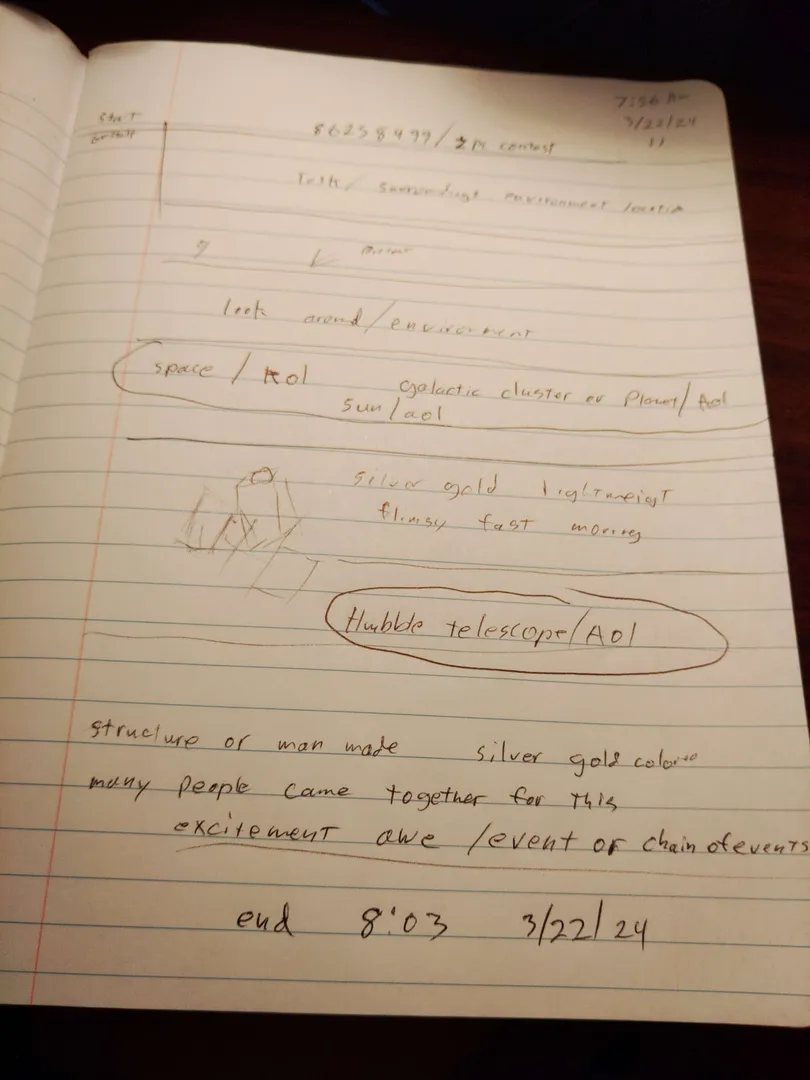 7:56 Am
3/22/24
11
Start
86258499/ contest
Task/ surroundings environment location
look around/environment
space / Aol galactic cluster or Planet/ Aol
sun/aol
silver gold lightweight
flimsy fast moving
Hubble telescope/Aol
structure or man made silver gold colored
many people came together for this
excitement awe /event or chain of events
end 8:03 3/22/24